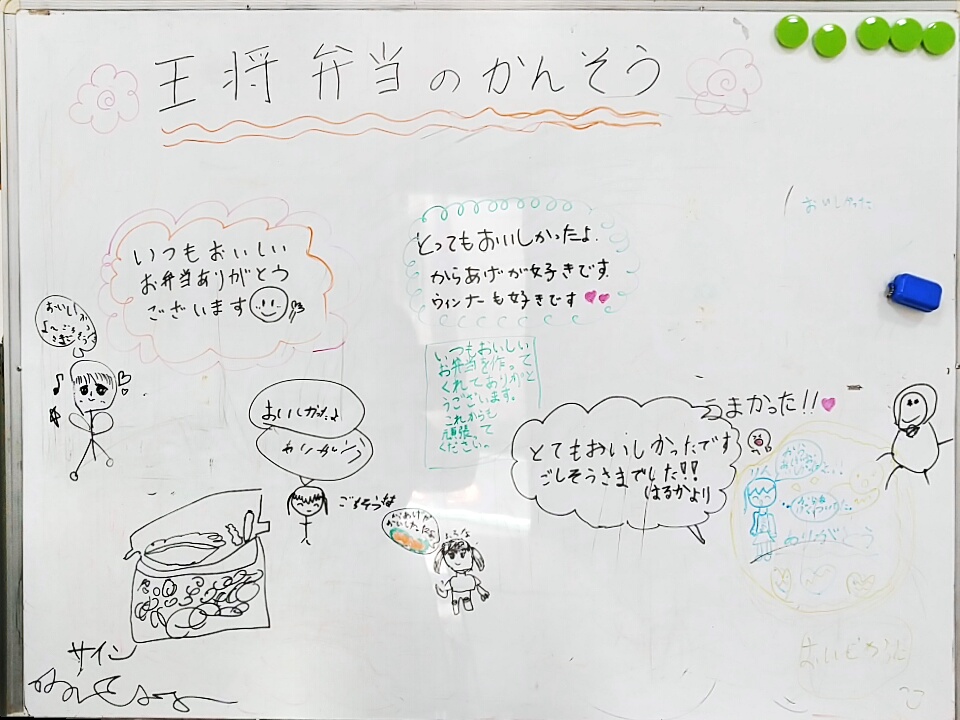 王将弁当のかんそう
おいしかった
いつもおいしい
お弁当ありがとう
ございます
とってもおいしかったよ.
からあげが好きです.
ウィンナーも好きです
いつもおいしい
お弁当を作って
くれてありがと
うございます。
これからも
頑張って
ください。
おいしかったよ
ごちそうさま
うまかった!!
とてもおいしかったです
ごしそうさまでした!!
はるかより
りん
ありがとう
サイン